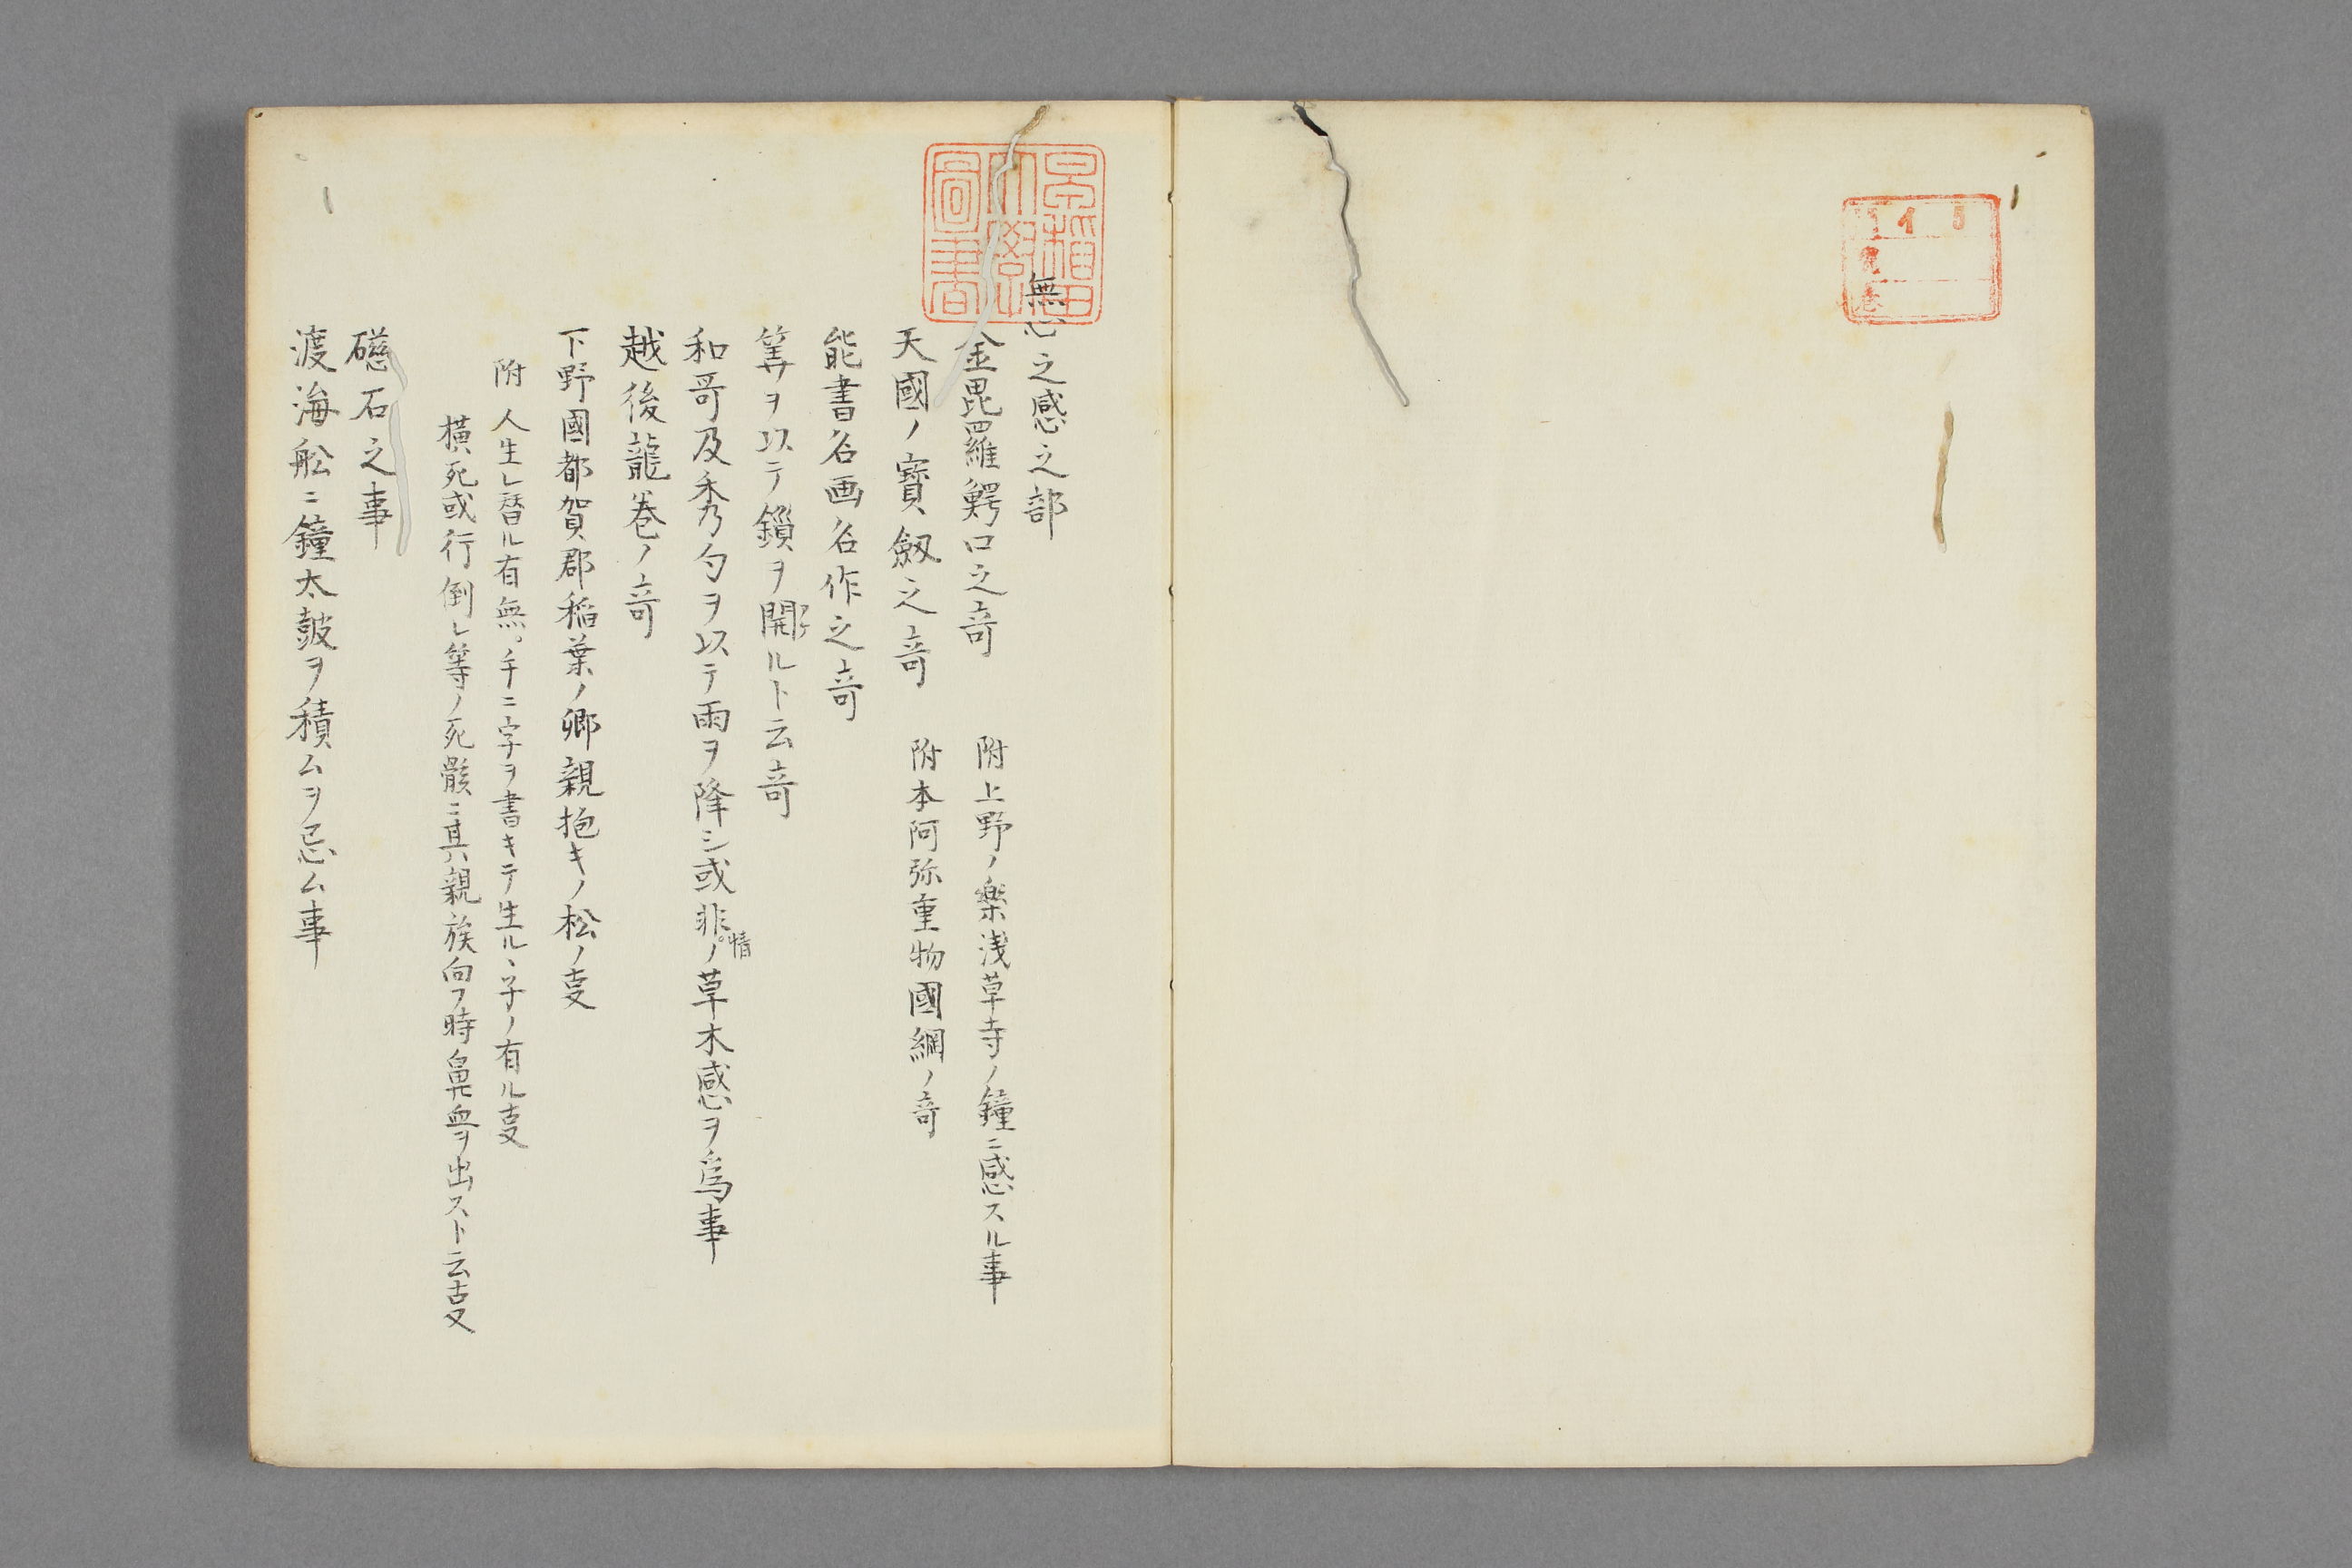 無心之感之部
金毘羅鰐口之竒　附上野ノ楽浅草寺ノ鐘ニ感スル事
天國ノ寳劔之竒　附本阿弥重物國綱ノ竒
能書名画名作之竒
筭ヲ以テ鎖ヲ開ルト云竒
和哥及秀勺ヲ以テ雨ヲ降シ或非情ノ草木感ヲ爲事
越後龍巻ノ竒
下野國都賀郡稲葉ノ卿親抱キノ松ノ㕝
附　人生レ替ル有無。手ニ字ヲ書キテ生ルヽ子ノ有ル㕝
横死或行倒レ等ノ死骸ニ其親族向フ時鼻血ヲ出スト云㕝
磁石之事
渡海舩ニ鐘太皷ヲ積ムヲ忌ム事
早稲田大學圖書